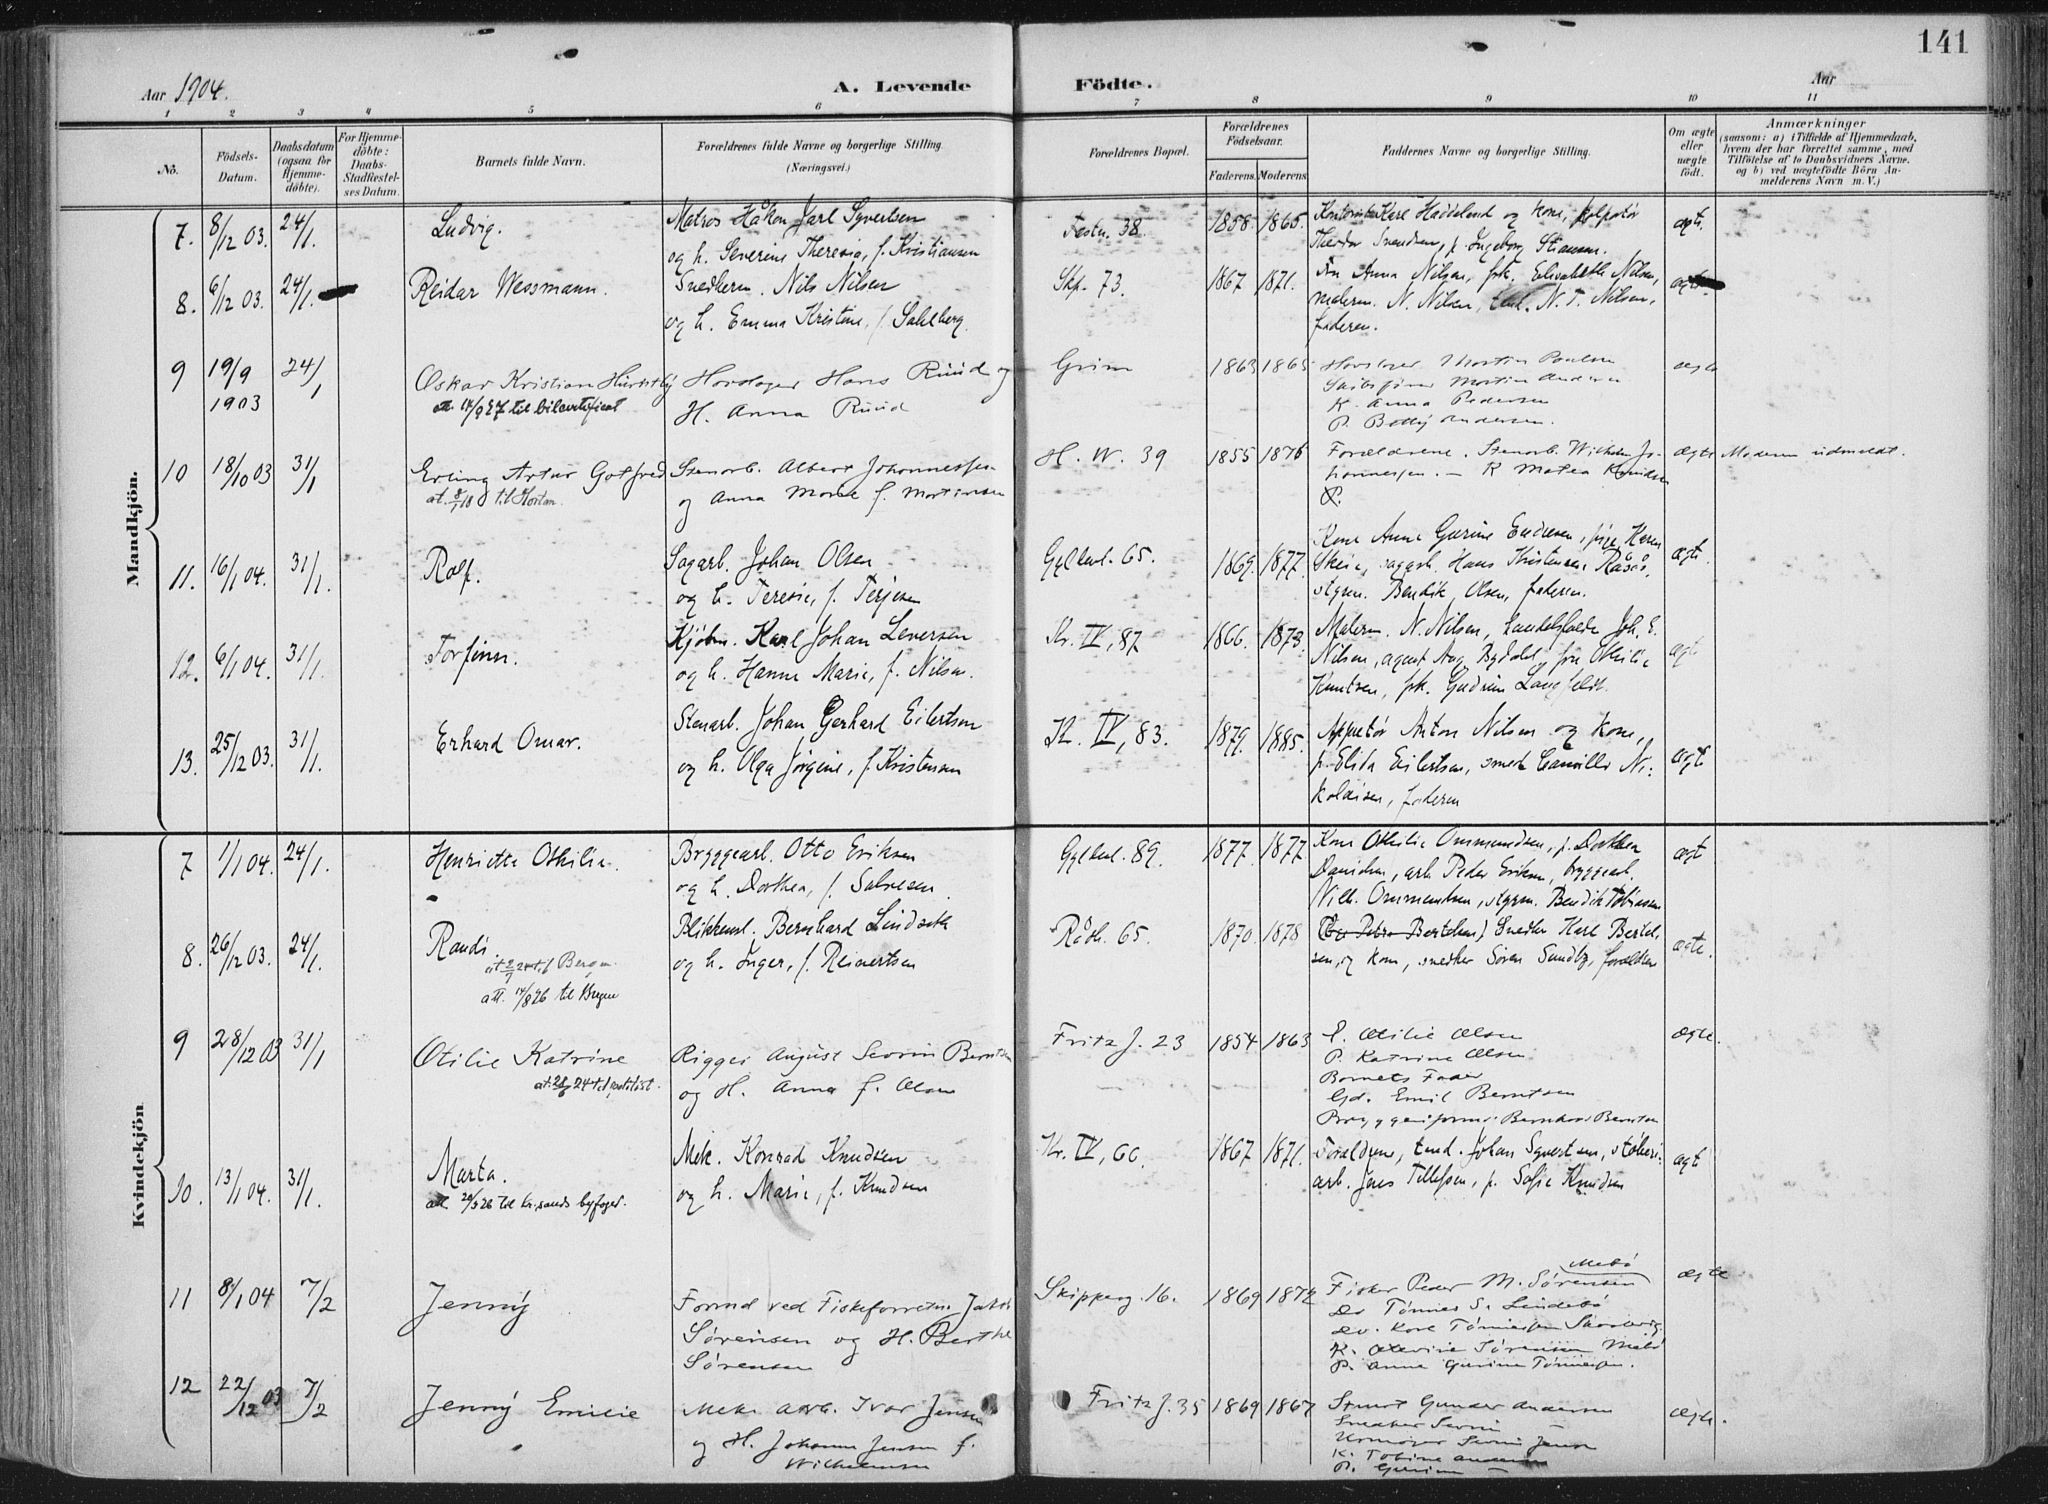 141
Aar 1904.
A. Levende
Födte.
Aar
1 2 3 4 5 6 7 8 9 10 11
No.
Födsels-Datum.
Daabsdatum (ogsaa for Hjemme-döbte).
For Hjemme-döbte: Daabs-Stadfæstel-ses Datum.
Barnets fulde Navn.
Forældrenes fulde Navne og borgerlige Stilling.
(Næringsvei.)
Forældrenes Bopæl.
Forældrenes Födselsaar.
Faderens. Moderens
Faddernes Navne og borgerlige Stilling.
Om ægte eller uægte födt.
Anmærkninger
(saasom: a) i Tilfælde af Hjemmedaab, hvem der har forrettet samme, med Tilföielse af to Daabsvidners Navne. og b) ved uægtefödte Börn An-melderens Navn m. V.)
Mandkjön.
7. 8/12 03. 24/1. Ludvig. Matros Håkon Jarl Syvertsen
og h. Severine Theresia, f. Kristiansen
Festn. 38. 1858. 1865. Karl Haddeland og kone,
Theodor Svendsen, p. Ingeborg
ægte.
8. 6/12 03. 24/1. Reidar Wessmann. Snedkerm. Nils Nilsen
og h. Emma Kristine, f. Sahlberg.
Skp. 73. 1867 1871. Fru Anna Nilsen, frk. Elisabeth Nilsen,
malerm. N. Nilsen, N. T. Nilsen,
faderen.
9 19/9 1903 24/1 Oskar Kristian
att. til bilcertifikat
Hans Ruud og
H. Anna Ruud
Grim 1863 1865 Martin Paulsen
Martin Andersen
K. Anna Pedersen
P. Andersen.
ægte
10 18/10 03 31/1 Erling Artur Gotfred
at. 8/1 18 til Horten.
Stenarb. Albert Johannessen
og Anna Marie f. Mortensen
H. W. 39 1855 1876 Forældrene. Stenarb. Wilhelm Jo-
hannesen. — K Matea Knudsen
P.
Ægte Moderen udmeldt.
11. 16/1 04. 31/1. Rolf. Sagarb. Johan Olsen
og h. Teresie, f. Terjesen
Gyldenl. 65. 1869. 1877. Kone Anne Gurine Endresen, pige Karen
Skeie, sagarb. Hans Kristensen
styrm. Bendik Olsen, faderen.
ægt.
12. 6/1 04. 31/1. Torfinn. Kjøbm. Karl Johan Leversen
og h. Hanne Marie, f. Nilsen.
Kr. IV, 87 1866. 1873. Malerm. N. Nilsen, Joh. E.
Nilsen, agent Aug. fru Othilie
Knutsen, frk. Gudrun Langfeldt.
ægt
13. 25/12 03. 31/1. Erhard Omar. Stenarb. Johan Gerhard Eilertsen
og h. Olga Jørgine, f. Kristensen
K. IV, 83. 1879. 1885. Anton Nilsen og kone,
p. Elida Eilertsen, smed Camillo Ni-
kolaisen, faderen
ægt
Kvindekjön
7 1/1 04. 24/1. Henriette Othilie. Bryggearb. Otto Eriksen
og h. Dorthea, f. Salvesen
Gyldenl. 89. 1877. 1877 Kone Othilie Ommundsen, p. Dorthea
arb. Peder Eriksen, bryggearb.
Vilh. Ommundsen, styrm. Bendik Tobiassen
ægt
8. 26/12 03. 24/1. Randi
til Bergen
att. 14/8 26 til Bergen
Blikkensl. Bernhard Lindseth
og h. Inger, f. Reinertsen
Rådh. 65. 1870. 1878 Bertelsen) Snedker Karl Bertel-
sen, og kone, snedker Søren Sundby, forældrene
ægte.
9 28/12 03 31/1 Otilie Katrine
Rigger August Severin Berntsen
og H. Anna f. Olsen
Fritz J. 23 1854 1863 P. Otilie Olsen
P. Katrine Olsen
Barnets Fader
Emil Berntsen
Bernhard Berntsen
ægte.
10. 13/1 04. 31/1. Marta.
att. 20/3 26 til Kr.sands byfoged.
Mek. Konrad Knudsen
og h. Marie, f. Knudsen
Kr. IV, 66. 1867 1871. Forældrene, tend. Johan Syvertsen, støberi-
arb. Jens Tellefsen, p. Sofie Knudsen
ægt
11 8/1 04 7/2 Jenny Formd ved Fiskeforretn. Jakob
Sørensen og H. Berthe
Sørensen
Skipperg. 16. 1869 1872 Mebø
Fisker Peder M. Sørensen
Do Tønnes S. Lindebø
Do. Karl Tønnessen
K. Sørensen Mebø
P. Anne Gurine Tønnessen.
ægte
12 22/12 03 7/2 Jenny Emilie Mek. Arb. Ivar Jensen
og H. Johanne Jensen f.
Wilhelmsen
Fritz J. 35 1869 1867 Gunder Andersen
Snedker Severin —
Urmager Jensen
K. Tobine Andersen
P. Gurine —
ægte.